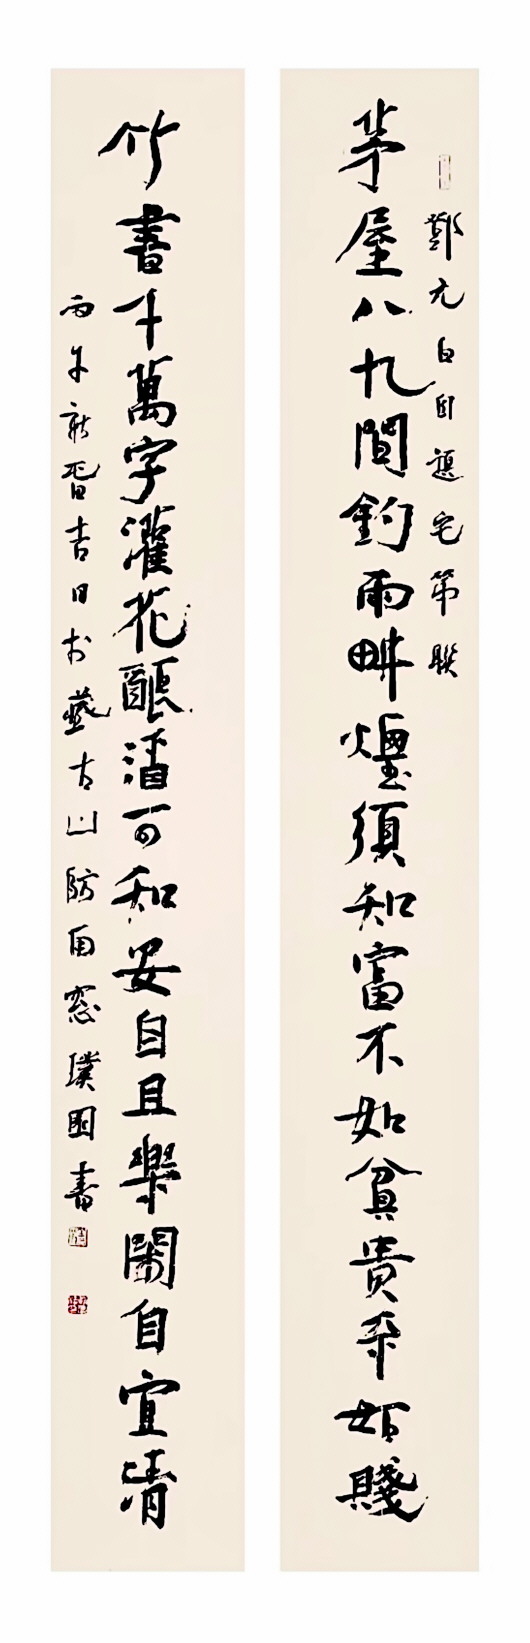 鄭元白自題宅第聯
茅屋八九間釣雨畊煙須知富不如貧貴不如賤
竹書千萬字灌花釀酒可知安自且樂閑自宜清
丙午新旾吉日於藝古山防南窓璞園書